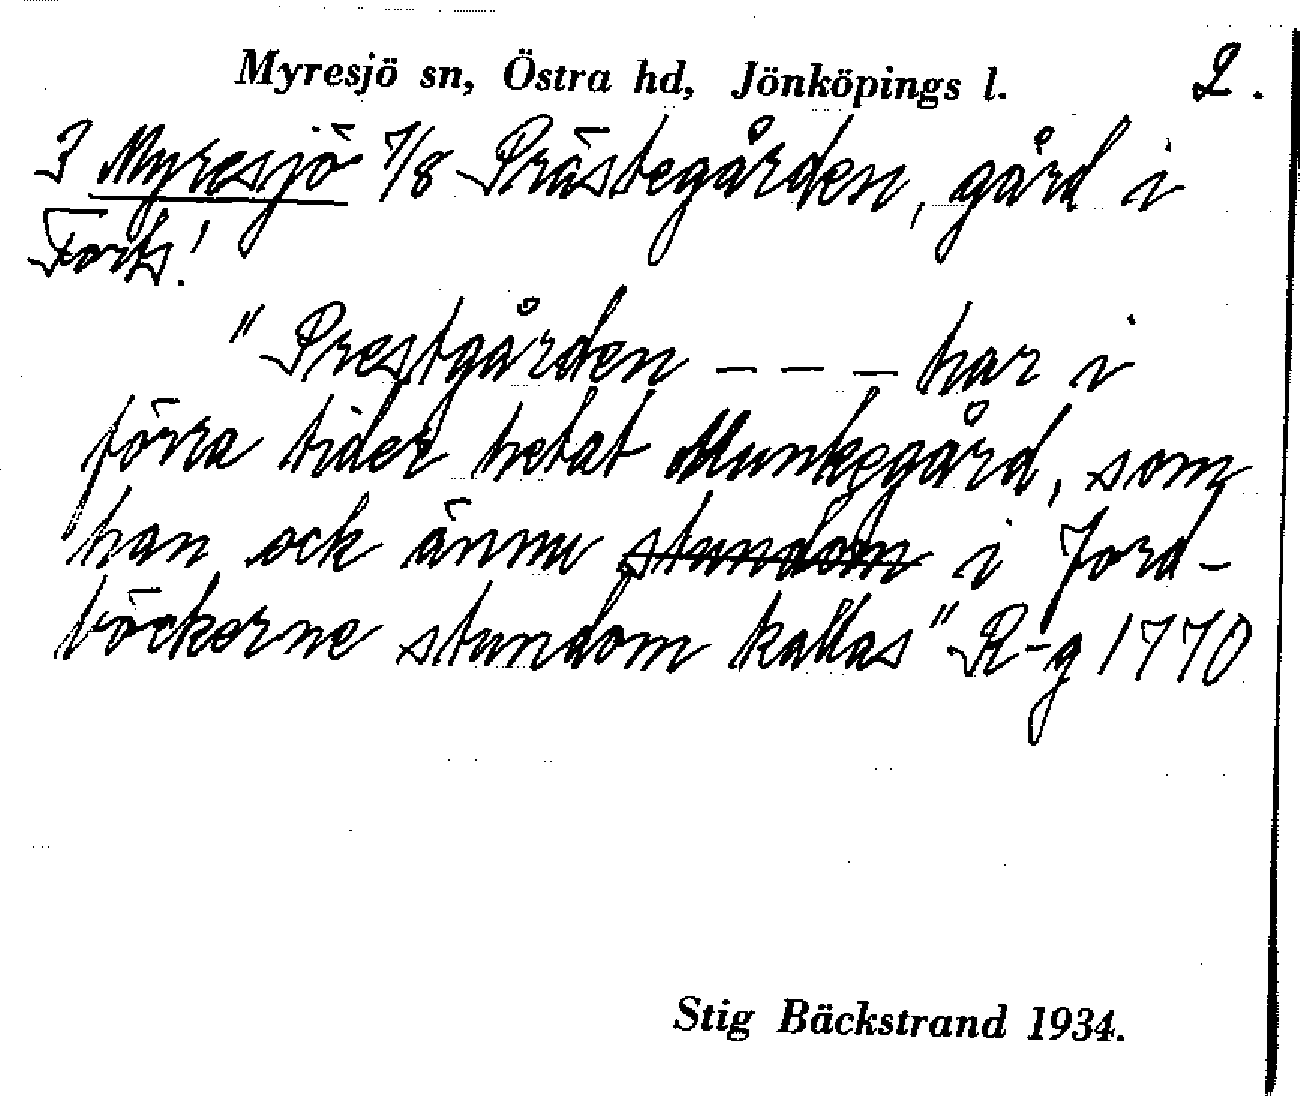 Myresjö sn, Östra hd, Jönköpings l. 2.
3 Myresjö 7/8 Prästegården, gård i
Forts.!
"Prestgården – – – har i
förra tider hetat Munkegård, som
han ock ännu stundom i Jord-
böckerne stundom kallas" R-g 1770
Stig Bäckstrand 1934.